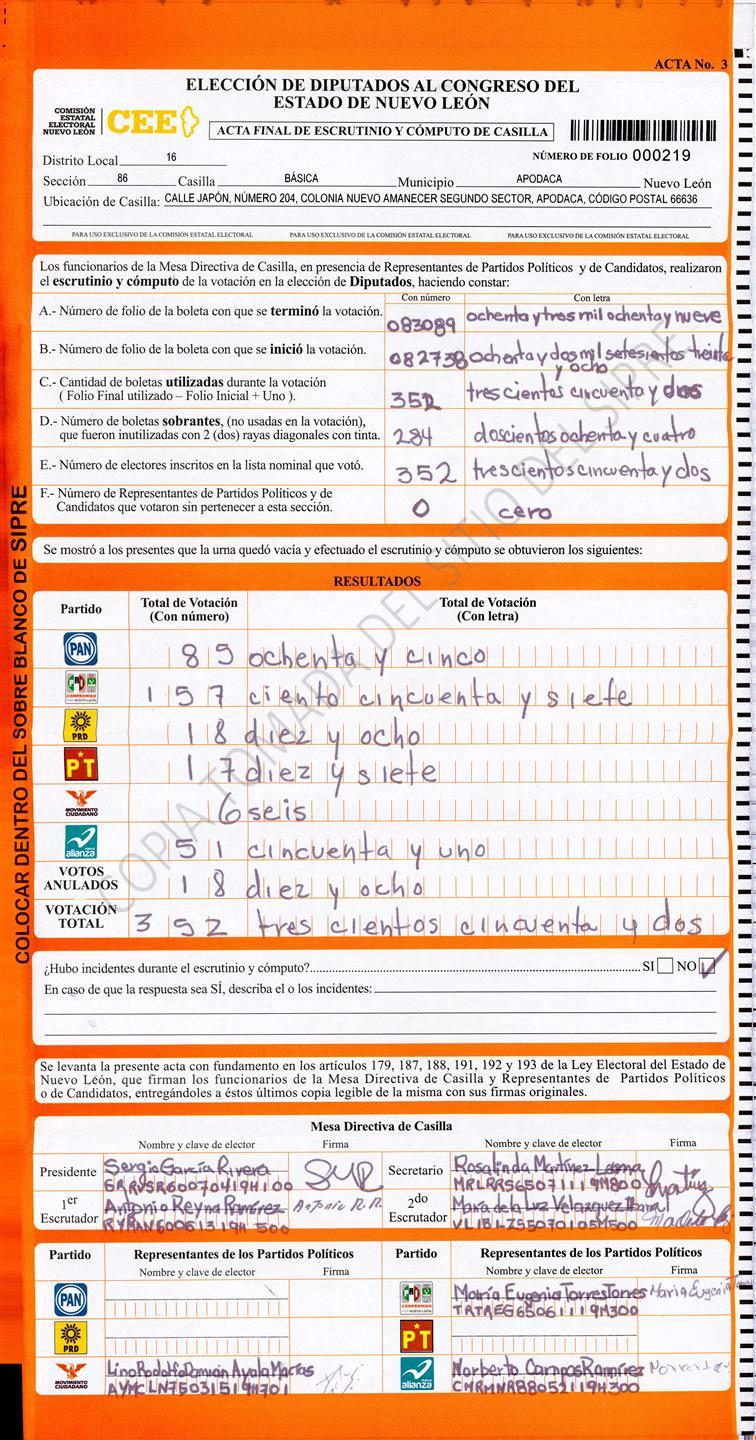 ACTA No. 3
ELECCIÓN DE DIPUTADOS AL CONGRESO DEL
ESTADO DE NUEVO LEÓN
COMISIÓN
ESTATAL
ELECTORAL
NUEVO LEÓN
CEE
ACTA FINAL DE ESCRUTINIO Y CÓMPUTO DE CASILLA
Distrito Local 16 NÚMERO DE FOLIO 000219
Sección 86 Casilla BÁSICA Municipio APODACA Nuevo León
Ubicación de Casilla: CALLE JAPÓN, NÚMERO 204, COLONIA NUEVO AMANECER SEGUNDO SECTOR, APODACA, CÓDIGO POSTAL 66636
PARA USO EXCLUSIVO DE LA COMISIÓN ESTATAL ELECTORAL PARA USO EXCLUSIVO DE LA COMISIÓN ESTATAL ELECTORAL PARA USO EXCLUSIVO DE LA COMISIÓN ESTATAL ELECTORAL
Los funcionarios de la Mesa Directiva de Casilla, en presencia de Representantes de Partidos Políticos y de Candidatos, realizaron
el escrutinio y cómputo de la votación en la elección de Diputados, haciendo constar:
Con número Con letra
A.- Número de folio de la boleta con que se terminó la votación. 083089 ochenta y tres mil ochenta y nueve
B.- Número de folio de la boleta con que se inició la votación. 082738 ochenta y dos mil setesientos treinta
y ocho
C.- Cantidad de boletas utilizadas durante la votación
( Folio Final utilizado – Folio Inicial + Uno ). 352 trescientos cincuenta y dos
D.- Número de boletas sobrantes, (no usadas en la votación),
que fueron inutilizadas con 2 (dos) rayas diagonales con tinta. 284 doscientos ochenta y cuatro
E.- Número de electores inscritos en la lista nominal que votó. 352 trescientos cincuenta y dos
F.- Número de Representantes de Partidos Políticos y de
Candidatos que votaron sin pertenecer a esta sección. 0 cero
Se mostró a los presentes que la urna quedó vacía y efectuado el escrutinio y cómputo se obtuvieron los siguientes:
RESULTADOS
Partido Total de Votación Total de Votación
(Con número) (Con letra)
PAN 85 ochenta y cinco
PRI COMPROMISO 157 ciento cincuenta y siete
PRD 18 diez y ocho
PT 17 diez y siete
MOVIMIENTO CIUDADANO 6 seis
nueva alianza 51 cincuenta y uno
VOTOS
ANULADOS 18 diez y ocho
VOTACIÓN
TOTAL 352 tres cientos cincuenta y dos
COPIA TOMADA DEL SITIO DEL SIPRE
COLOCAR DENTRO DEL SOBRE BLANCO DE SIPRE
¿Hubo incidentes durante el escrutinio y cómputo?.......... SI NO
En caso de que la respuesta sea SÍ, describa el o los incidentes:
Se levanta la presente acta con fundamento en los artículos 179, 187, 188, 191, 192 y 193 de la Ley Electoral del Estado de
Nuevo León, que firman los funcionarios de la Mesa Directiva de Casilla y Representantes de Partidos Políticos
o de Candidatos, entregándoles a éstos últimos copia legible de la misma con sus firmas originales.
Mesa Directiva de Casilla
Nombre y clave de elector Firma Nombre y clave de elector Firma
Presidente Sergio García Rivera Secretario Rosalinda Martínez
GRRVSR60070419H100 MRLRRS65071119M800
1er
Escrutador Antonio Reyna Ramírez Antonio R.R.
RYRMAN60061319H500
2do
Escrutador María de la Luz Velazquez
VLIBLZ55070105M500
Partido Representantes de los Partidos Políticos Partido Representantes de los Partidos Políticos
Nombre y clave de elector Firma Nombre y clave de elector Firma
PAN
PRI COMPROMISO María Eugenia Torres Torres María Eugenia
TRTREG65061119M300
PRD
PT
MOVIMIENTO CIUDADANO Lino Rodolfo Damián Ayala Macías
AYMCLN75031519H701
nueva alianza Norberto Campos Ramírez
CMRMNR88052119H300